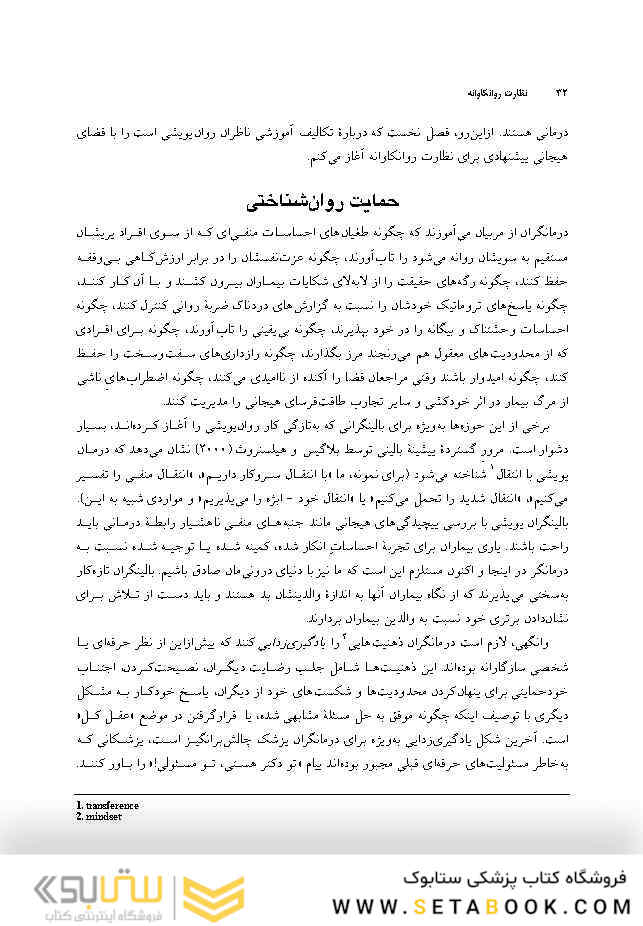 ۳۲ نظارت روانکاوانه
درمانی هستند. ازاین‌رو، فصل نخست که دربارهٔ تکالیف آموزشی ناظران روان‌پویشی است را با فضای
هیجانی پیشنهادی برای نظارت روانکاوانه آغاز می‌کنم.
حمایت روان‌شناختی
درمانگران از مربیان می‌آموزند که چگونه طغیان‌های احساسات منفی‌ای که از سوی افراد پریشان
مستقیم به سویشان روانه می‌شود را تاب‌آورند، چگونه عزت‌نفسشان را در برابر ارزش‌کاهی بی‌وقفه
حفظ کنند، چگونه رگه‌های حقیقت را از لابه‌لای شکایات بیماران بیرون کشند و با آن کار کنند،
چگونه پاسخ‌های تروماتیک خودشان را نسبت به گزارش‌های دردناک ضربهٔ روانی کنترل کنند، چگونه
احساسات وحشتناک و بیگانه را در خود بپذیرند، چگونه بی‌یقینی را تاب‌آورند، چگونه برای افرادی
که از محدودیت‌های معقول هم می‌رنجند مرز بگذارند، چگونه رازداری‌های سفت‌وسخت را حفظ
کنند، چگونه امیدوار باشند وقتی مراجعان فضا را آکنده از ناامیدی می‌کنند، چگونه اضطراب‌هایِ ناشی
از مرگ بیمار در اثر خودکشی و سایر تجارب طاقت‌فرسای هیجانی را مدیریت کنند.
برخی از این حوزه‌ها به‌ویژه برای بالینگرانی که به‌تازگی کار روان‌پویشی را آغاز کرده‌اند، بسیار
دشوار است. مرور گستردهٔ پیشینهٔ بالینی توسط بلاگیس و هیلسنروث (۲۰۰۰) نشان می‌دهد که درمان
پویشی با انتقال۱ شناخته می‌شود (برای نمونه، ما «با انتقال سروکار داریم»، «انتقال منفی را تفسیر
می‌کنیم»، «انتقال شدید را تحمل می‌کنیم» یا «انتقال خود – ابژه را می‌پذیریم» و مواردی شبیه به این).
بالینگران پویشی با بررسی پیچیدگی‌های هیجانی مانند جنبه‌های منفی ناهشیار رابطهٔ درمانی باید
راحت باشند. یاری بیماران برای تجربهٔ احساساتِ انکار شده، کمینه شده یا توجیه شده نسبت به
درمانگر در اینجا و اکنون مستلزم این است که ما نیز با دنیای درونی‌مان صادق باشیم. بالینگران تازه‌کار
به‌سختی می‌پذیرند که از نگاه بیماران آنها به اندازهٔ والدینشان بد هستند و باید دست از تلاش برای
نشان‌دادن برتری خود نسبت به والدین بیماران بردارند.
وانگهی، لازم است درمانگران ذهنیت‌هایی۲ را یادگیری‌زدایی کنند که پیش‌ازاین از نظر حرفه‌ای یا
شخصی سازگارانه بوده‌اند. این ذهنیت‌ها شامل جلب رضایت دیگران، نصیحت‌کردن، اجتناب
خودحمایتی برای پنهان‌کردن محدودیت‌ها و شکست‌های خود از دیگران، پاسخ خودکار به مشکل
دیگری با توصیف اینکه چگونه موفق به حل مسئلهٔ مشابهی شده، یا قرارگرفتن در موضع «عقل کل»
است. آخرین شکل یادگیری‌زدایی به‌ویژه برای درمانگران پزشک چالش‌برانگیز است، پزشکانی که
به‌خاطر مسئولیت‌های حرفه‌ای قبلی مجبور بوده‌اند پیام «تو دکتر هستی، تو مسئولی!» را باور کنند.
1. transference
2. mindset
ستابوک
فروشگاه اینترنتی کتاب
فروشگاه کتاب پزشکی ستابوک
WWW.SETABOOK.COM